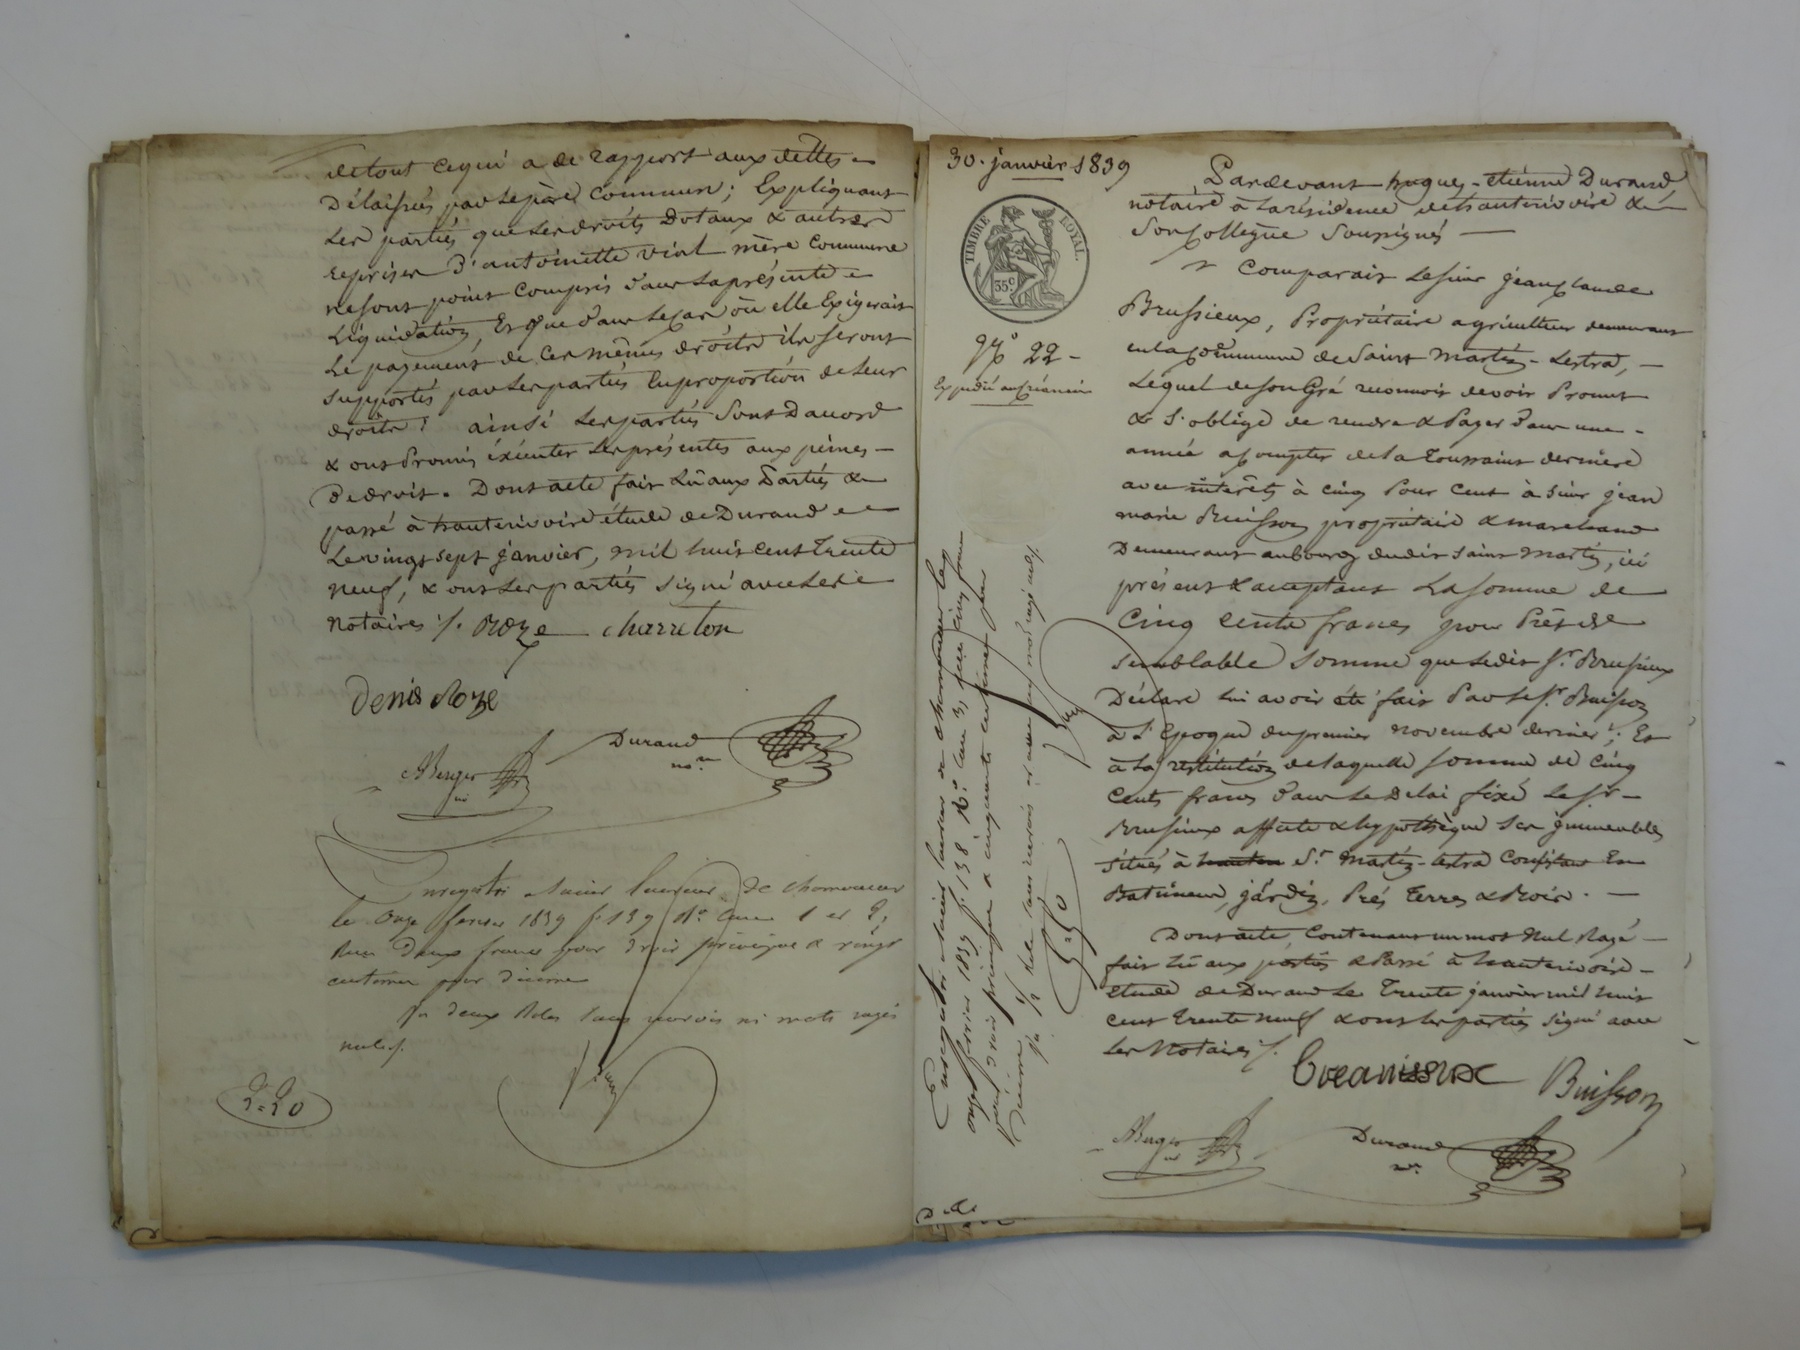 de tout ce qui a de rapport aux dettes
Délaissées par le père commun; Expliquant
les parties que les droits Dotaux & autres
reprises d'antoinette vial mère commune
ne sont point compris dans la présente
Liquidation, Et que dans le cas où elle Exigerait
Le payement de ces mêmes droits ils seront
supportés par les parties En proportion de leur
droits: ainsi les parties sont D'accord
& ont Promis éxécuter les présentes aux peines
De droit. Dont acte fait Lû aux Parties &
passé à hauterivoire étude de Durand
Le vingt sept janvier, mil huit cent trente
neuf, & ont les parties signé avec les
notaires ./. Roze charreton
Denis Roze
Berger
Durand
nre
Enregistré à Saint Laurent de chamousset
le onze fevrier 1839 fo 139 Ro case 1 et 2,
Reçu deux francs pour droit principal & vingt
centimes pour décime
deux Roles sans renvois ni mots rayés
nuls ./.
2=20
30. janvier 1839
TIMBRE ROYAL.
35c
No 22 -
Expédié au créancier
Enregistré à Saint Laurent de chamousset le
onze fevrier 1839 fo 138 Ro case 3, reçu cinq francs
pour droit principal & cinquante centimes pour
décime ./.
5=50
Pardevant hugues-etienne Durand,
notaire à la résidence de hauterivoire &
Son Collègue Soussignés
Comparait le sieur jean claude
Brussieux, Propriétaire agriculteur demeurant
en la commune de Saint Martin-Lestra,
Lequel de son Gré reconnoit devoir Promet
& s'oblige de rendre & Payer dans une
année à compter de la Toussaint dernière
avec intérêts à cinq Pour Cent à sieur jean
marie Buisson propriétaire & marchand
Demeurant au bourg dudit saint Martin, ici
présent & acceptant La somme de
Cinq cents francs pour Prêt de
semblable somme que ledit Sr. Brussieux
Déclare lui avoir été fait Par le Sr. Buisson
à l'Epoque du premier novembre dernier; Et
à la restitution de laquelle somme de cinq
cents francs dans le Délai fixé le Sr
Brussieux affecte & hypothèque ses immeubles
situés à St. Martin-lestra Consistant En
Batimens, jardin, Prés Terres & Bois.
Dont acte, Contenant un mot Nul Rayé
fait lû aux parties & Passé à hauterivoire
Etude de Durand Le Trente janvier mil huit
cent trente neuf & ont les parties signé avec
les Notaires ./.
Buisson
Berger
Durand
nre.